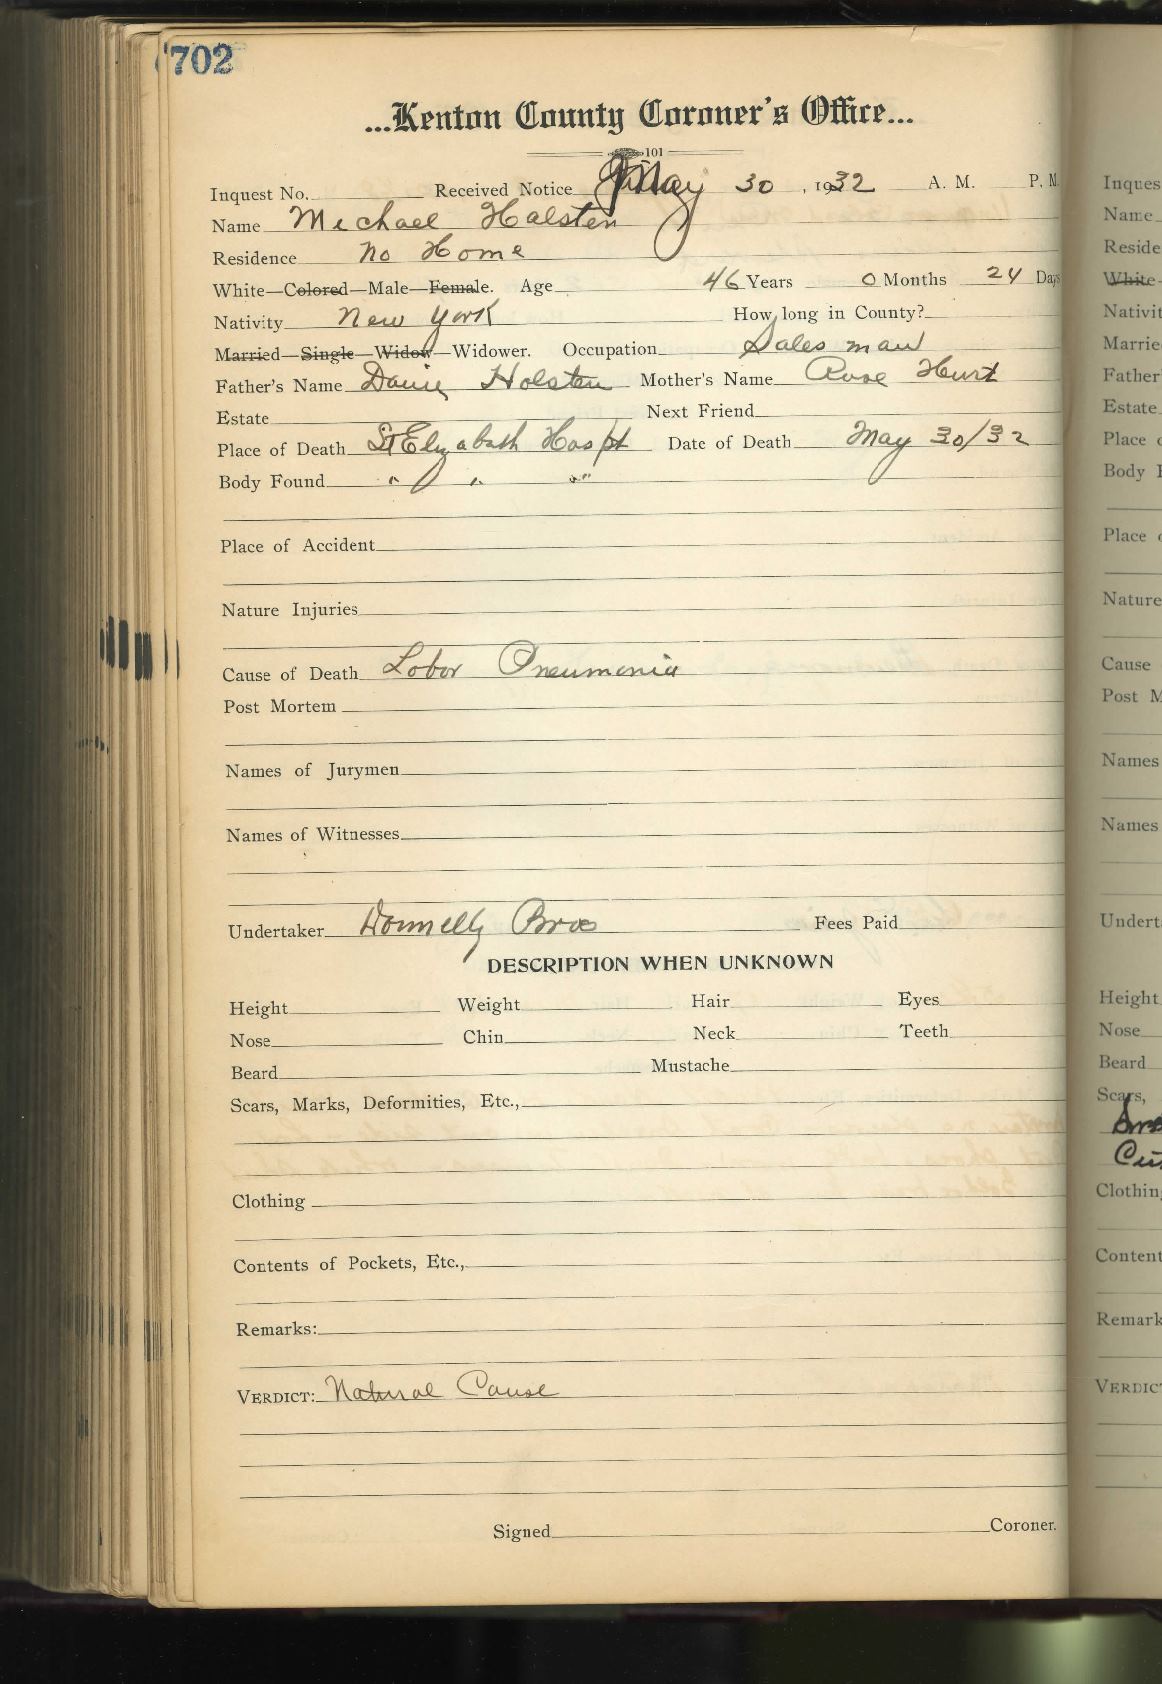 702
...Kenton County Coroner's Office...
101
Inquest No. Received Notice May 30, 1932 A. M. P. M.
Name Michael Halsten
Residence no Home
White—Colored—Male—Female. Age 46 Years 0 Months 24 Days
Nativity New York How long in County?
Married—Single—Widow—Widower. Occupation Sales man
Father's Name Holsten Mother's Name Rose Hurt
Estate Next Friend
Place of Death St Elizabath Hospt Date of Death May 30/32
Body Found " " "
Place of Accident
Nature Injuries
Cause of Death Lobor Pneumonia
Post Mortem
Names of Jurymen
Names of Witnesses
Undertaker Donnelly Bros Fees Paid
DESCRIPTION WHEN UNKNOWN
Height Weight Hair Eyes
Nose Chin Neck Teeth
Beard Mustache
Scars, Marks, Deformities, Etc.,
Clothing
Contents of Pockets, Etc.,
Remarks:
VERDICT: Natural Cause
Signed Coroner.
Inques
Name
Reside
White
Nativit
Marrie
Father
Estate
Place o
Body F
Place o
Nature
Cause
Post M
Names
Names
Undert
Height
Nose
Beard
Scars,
Clothing
Content
Remark
VERDICT